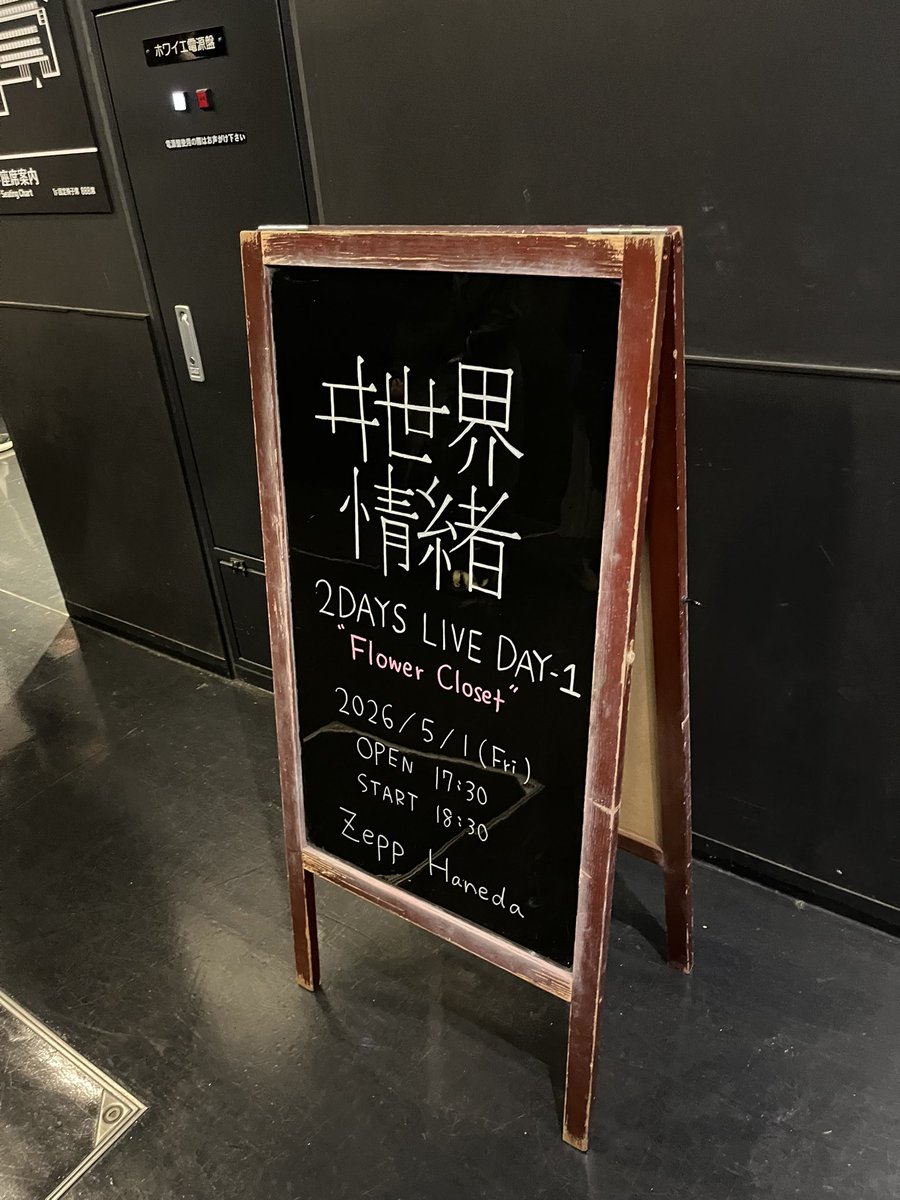 ホワイエ電源盤
電源盤使用の際はお声がけ下さい
座席案内
Seating Chart
ヰ世界
情緒
2DAYS LIVE DAY-1
"Flower Closet"
2026/5/1(Fri)
OPEN 17:30
START 18:30
Zepp Haneda